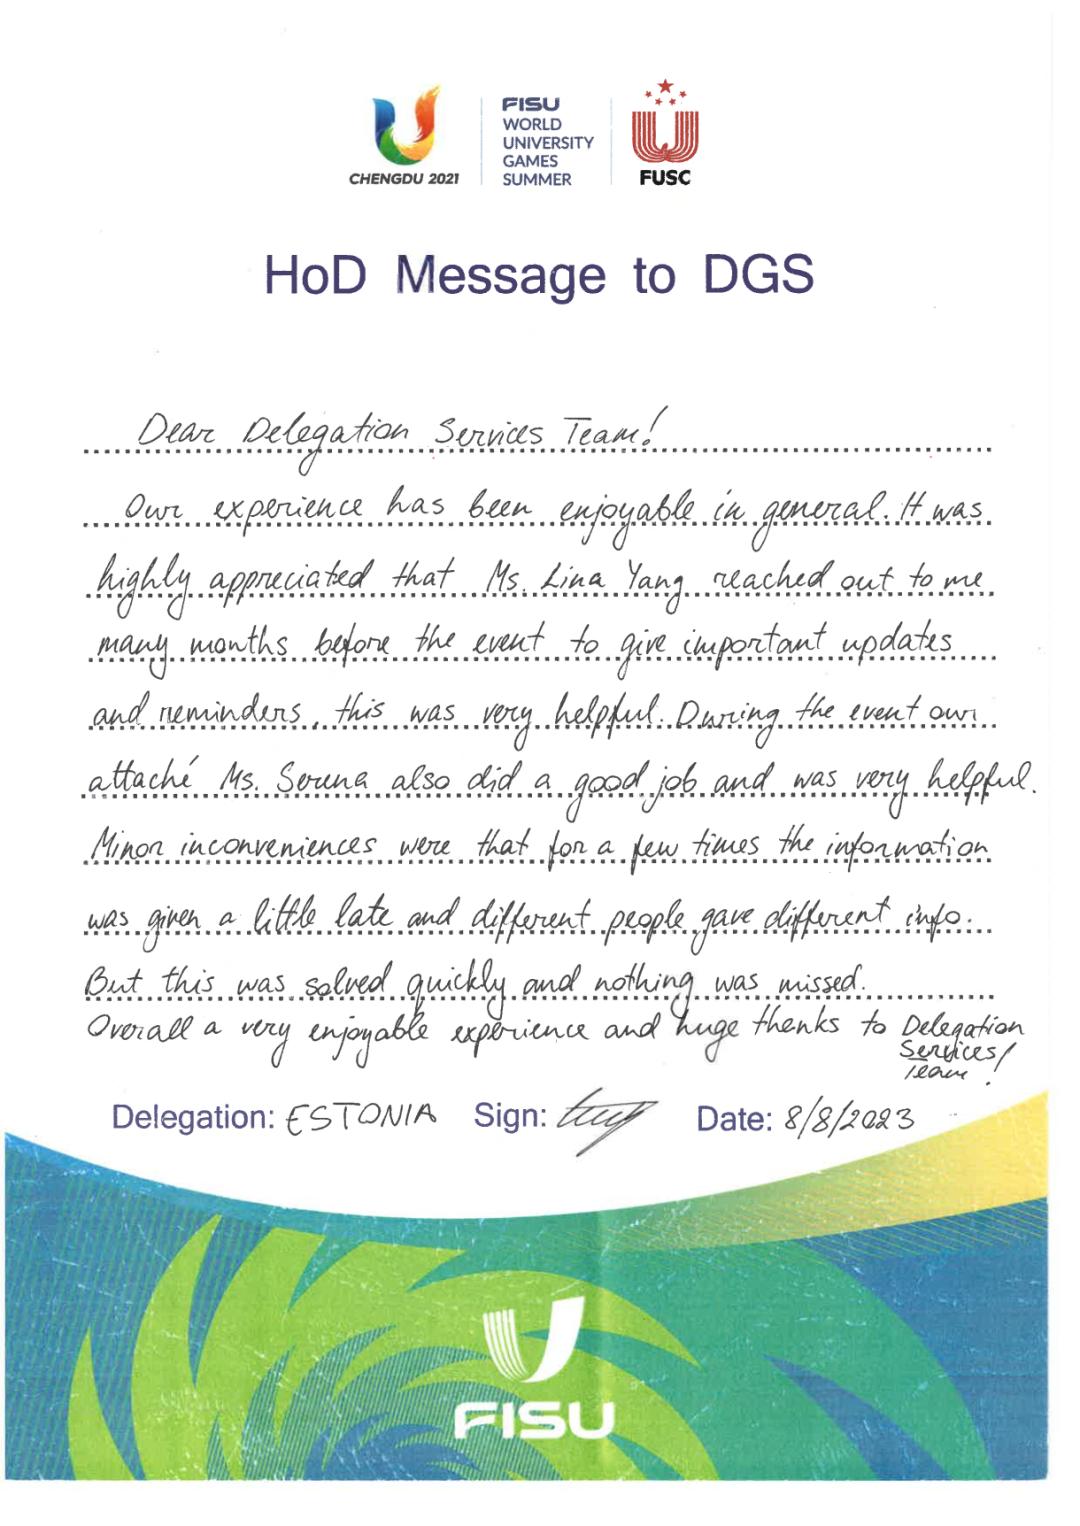 CHENGDU 2021
FISU
WORLD
UNIVERSITY
GAMES
SUMMER
FUSC
HoD Message to DGS
Dear Delegation Services Team!
Our experience has been enjoyable in general. It was
highly appreciated that Ms. Lina Yang reached out to me
many months before the event to give important updates
and reminders, this was very helpful. During the event our
attaché Ms. Seruna also did a good job and was very helpful.
Minor inconveniences were that for a few times the information
was given a little late and different people gave different info.
But this was solved quickly and nothing was missed.
Overall a very enjoyable experience and huge thanks to Delegation
Services
Team!
Delegation: ESTONIA Sign: Date: 8/8/2023
FISU